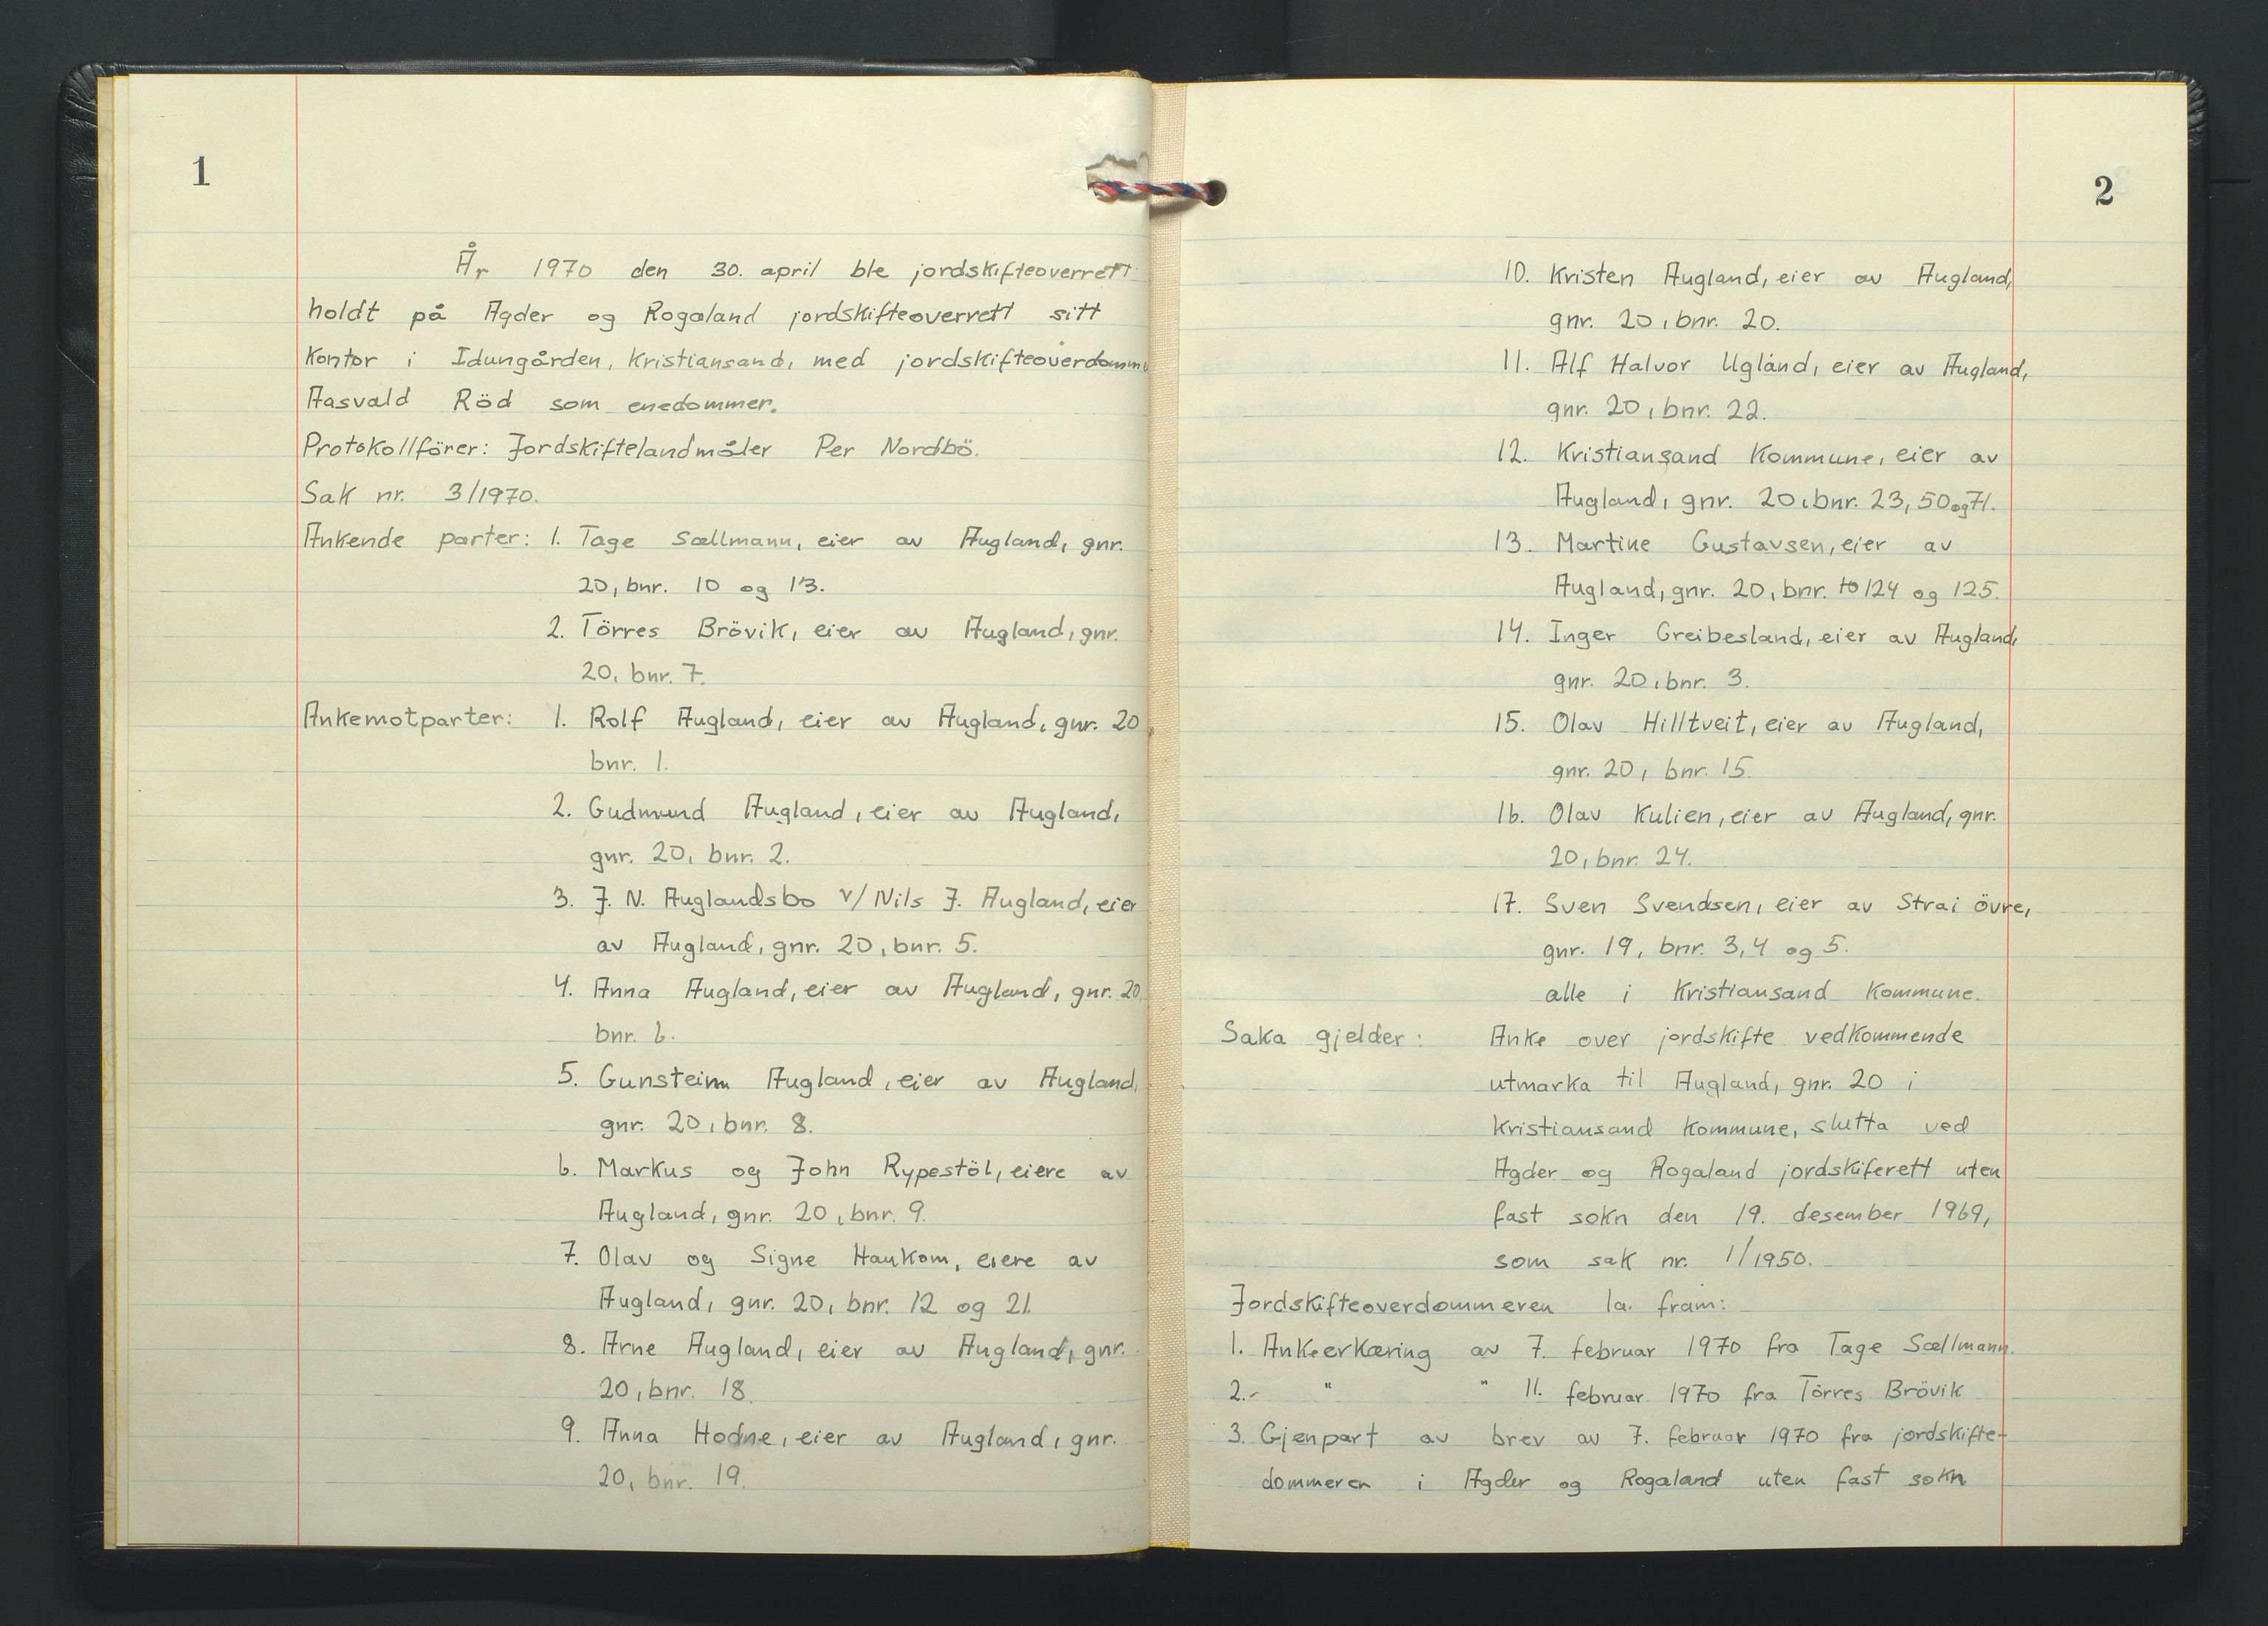 1
År 1970 den 30. april ble jordskifteoverrett
holdt på Agder og Rogaland jordskifteoverrett sitt
kontor i Idungården, Kristiansand, med jordskifteoverdomme
Aasvald Röd som enedommer.
Protokollförer: Jordskiftelandmåler Per Nordbö.
Sak nr. 3/1970.
Ankende parter: 1. Tage Sællmann, eier av Augland, gnr.
20, bnr. 10 og 13.
2. Törres Brövik, eier av Augland, gnr.
20, bnr. 7.
Ankemotparter: 1. Rolf Augland, eier av Augland, gnr. 20
bnr. 1.
2. Gudmund Augland, eier av Augland,
gnr. 20, bnr. 2.
3. J. N. Auglandsbo v/ Nils J. Augland, eier
av Augland, gnr. 20, bnr. 5.
4. Anna Augland, eier av Augland, gnr. 20,
bnr. 6.
5. Gunsteinn Augland, eier av Augland,
gnr. 20, bnr. 8.
6. Markus og John Rypestöl, eiere av
Augland, gnr. 20, bnr. 9.
7. Olav og Signe Haukom, eiere av
Augland, gnr. 20, bnr. 12 og 21.
8. Arne Augland, eier av Augland, gnr.
20, bnr. 18.
9. Anna Hodne, eier av Augland, gnr.
20, bnr. 19.
2
10. Kristen Augland, eier av Augland,
gnr. 20, bnr. 20.
11. Alf Halvor Ugland, eier av Augland,
gnr. 20, bnr. 22.
12. Kristiansand Kommune, eier av
Augland, gnr. 20, bnr. 23, 50 og 71.
13. Martine Gustavsen, eier av
Augland, gnr. 20, bnr. 124 og 125.
14. Inger Greibesland, eier av Augland,
gnr. 20, bnr. 3.
15. Olav Hilltveit, eier av Augland,
gnr. 20, bnr. 15.
16. Olav Kulien, eier av Augland, gnr.
20, bnr. 24.
17. Sven Svendsen, eier av Strai övre,
gnr. 19, bnr. 3, 4 og 5.
alle i Kristiansand Kommune.
Saka gjelder: Anke over jordskifte vedkommende
utmarka til Augland, gnr. 20 i
Kristiansand Kommune, slutta ved
Agder og Rogaland jordskiferett uten
fast sokn den 19. desember 1969,
som sak nr. 1/1950.
Jordskifteoverdommeren la fram:
1. Ankeerkæring av 7. februar 1970 fra Tage Sællmann.
2.- " " 11. februar 1970 fra Törres Brövik
3. Gjenpart av brev av 7. februar 1970 fra jordskifte-
dommeren i Agder og Rogaland uten fast sokn